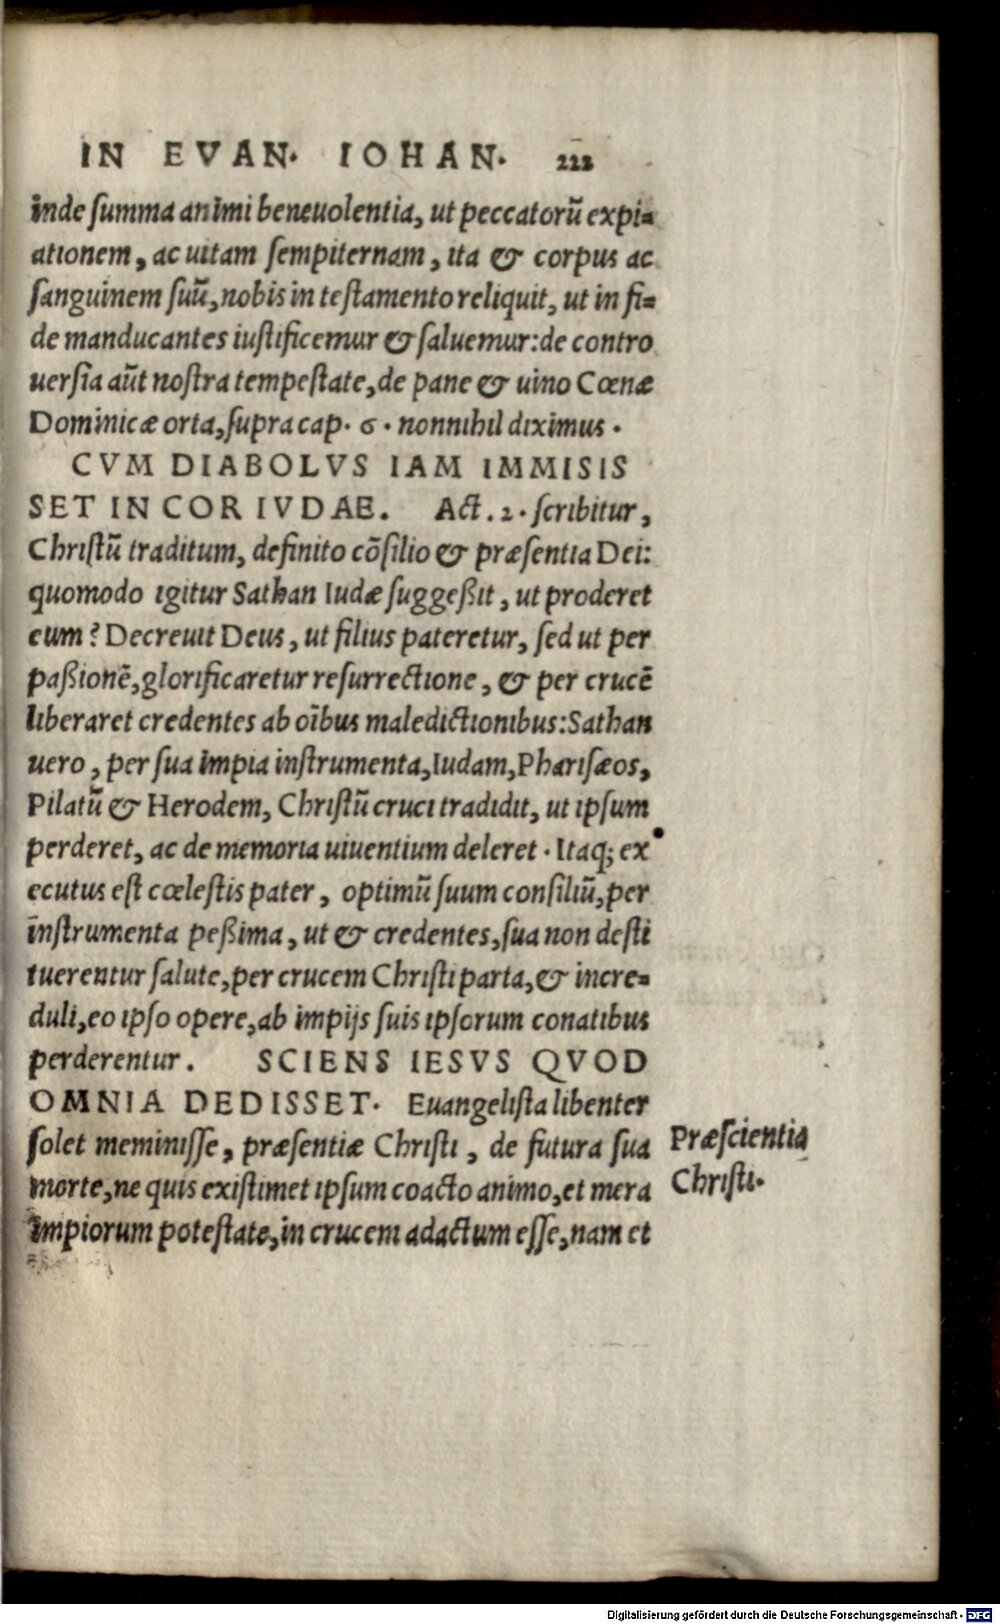 IN EVAN. IOHAN. 222
inde summa animi beneuolentia, ut peccatorũ expi=
ationem, ac uitam sempiternam, ita & corpus ac
sanguinem suũ, nobis in testamento reliquit, ut in fi=
de manducantes iustificemur & saluemur: de contro
uersia aũt nostra tempestate, de pane & uino Cœnæ
Dominicæ orta, supra cap. 6. nonnihil diximus.
CVM DIABOLVS IAM IMMISIS
SET IN COR IVDAE. Act. 2. scribitur,
Christũ traditum, definito cõsilio & præsentia Dei:
quomodo igitur Sathan Iudæ suggeßit, ut proderet
eum? Decreuit Deus, ut filius pateretur, sed ut per
paßionẽ, glorificaretur resurrectione, & per crucẽ
liberaret credentes ab oĩbus maledictionibus: Sathan
uero, per sua impia instrumenta, Iudam, Pharisæos,
Pilatũ & Herodem, Christũ cruci tradidit, ut ipsum
perderet, ac de memoria uiuentium deleret. Itaq; ex
ecutus est cœlestis pater, optimũ suum consiliũ, per
instrumenta peßima, ut & credentes, sua non desti
tuerentur salute, per crucem Christi parta, & incre=
duli, eo ipso opere, ab impijs suis ipsorum conatibus
perderentur. SCIENS IESVS QVOD
OMNIA DEDISSET. Euangelista libenter
solet meminisse, præsentiæ Christi, de futura sua
morte, ne quis existimet ipsum coacto animo, et mera
impiorum potestate, in crucem adactum esse, nam et
Præscientia
Christi.
Digitalisierung gefördert durch die Deutsche Forschungsgemeinschaft - DFG